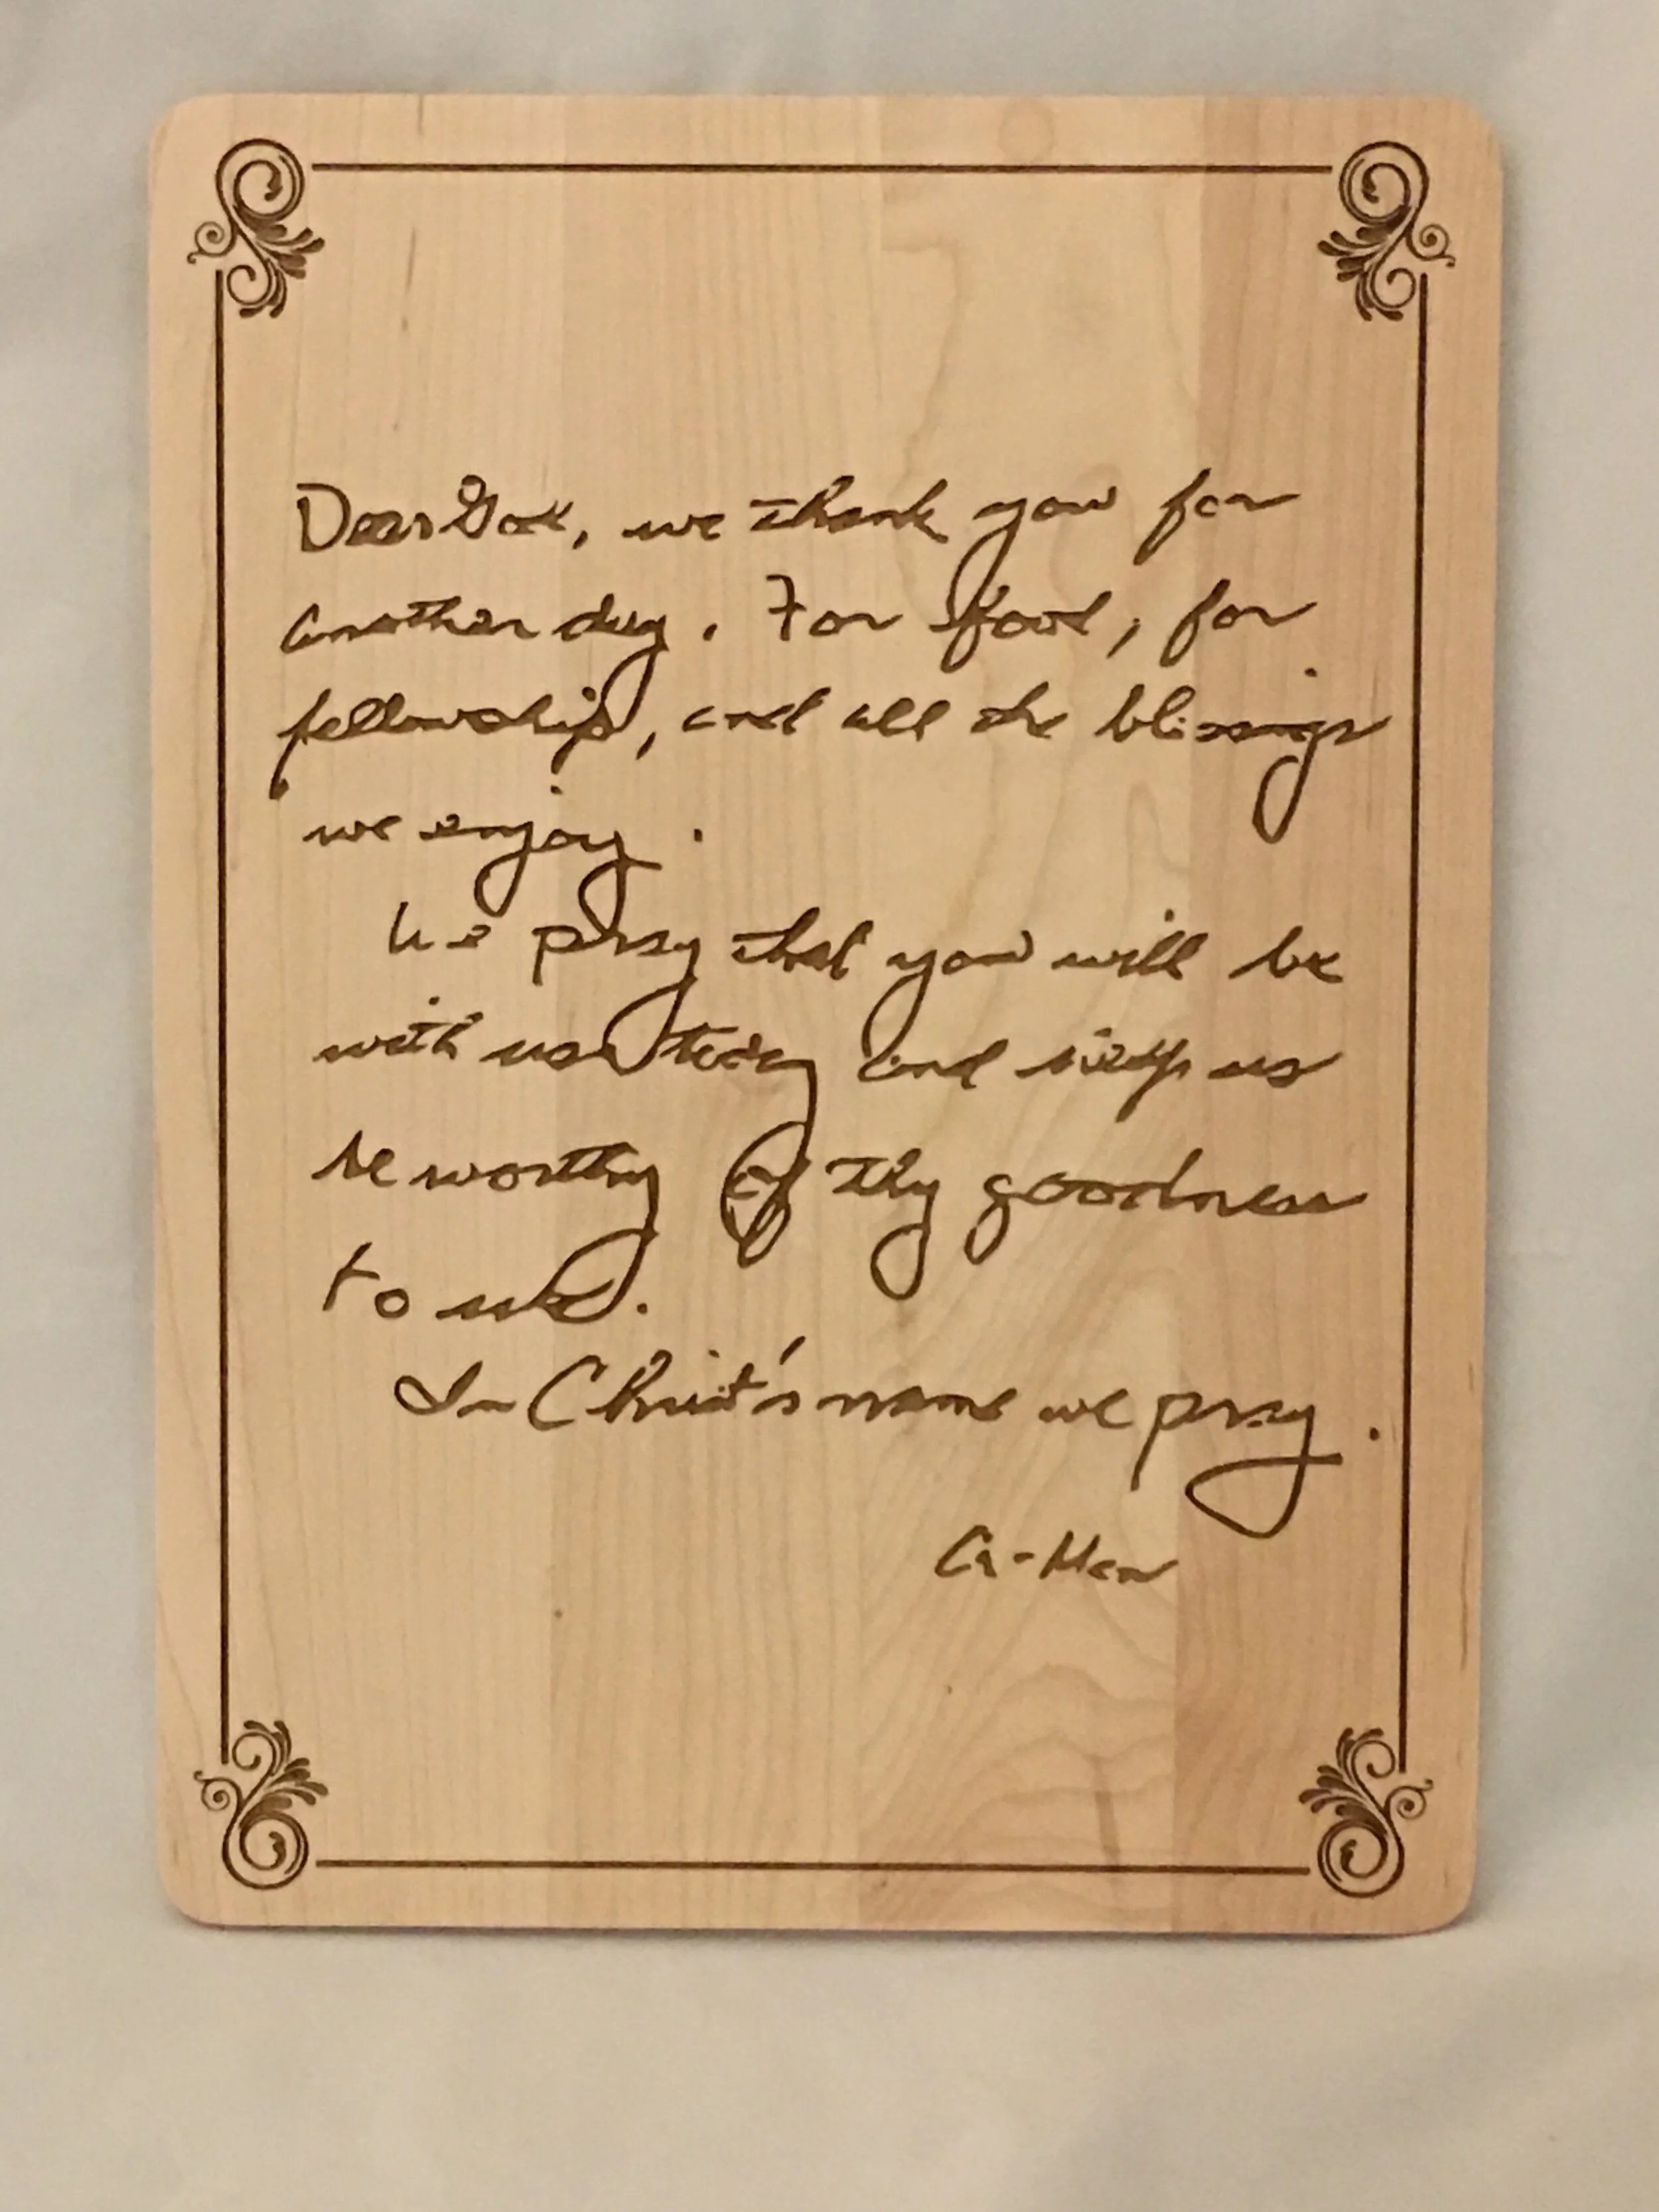 Dear God, we thank you for
another day. For food, for
fellowship, and all the blessings
we enjoy.
We pray that you will be
with us today and help us
be worthy of thy goodness
to us.
In Christ's name we pray.
A-Men